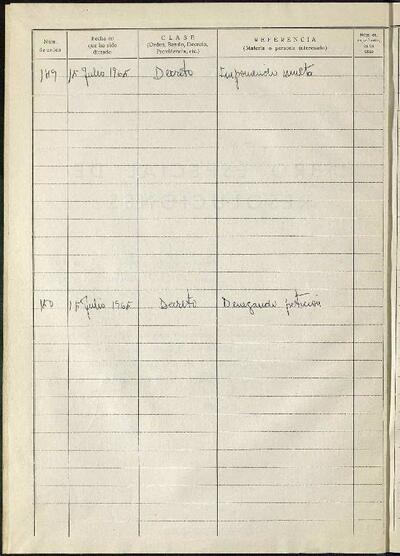 Núm. de orden
Fecha en que ha sido dictado
CLASE
(Orden, Bando, Decreto, Providencia, etc.)
REFERENCIA
(Materia o persona interesada)
15 Julio 1965 Decreto Imponiendo multa
150 15 Julio 1965 Decreto Denegando petición